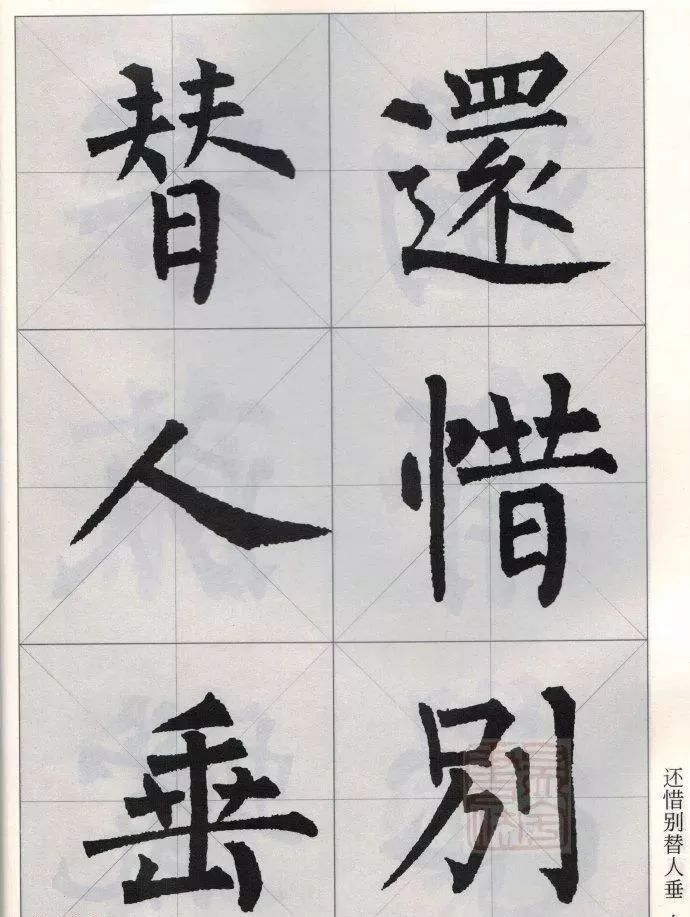 還惜別
替人垂
还惜别替人垂